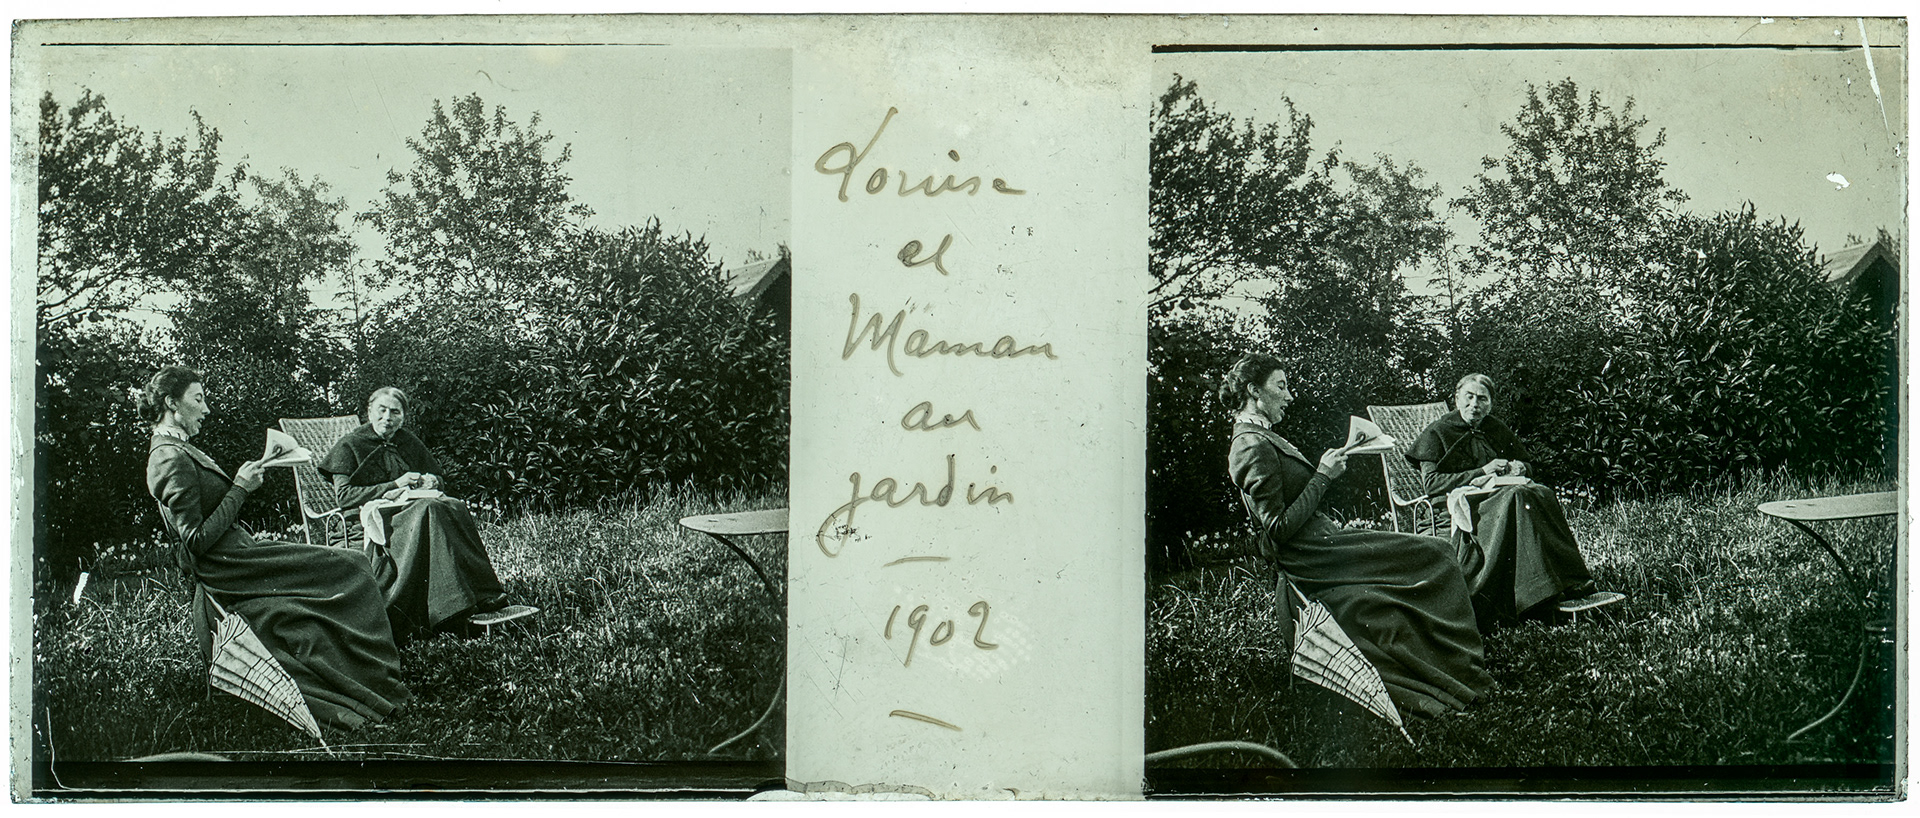 Louise
et
Maman
au
jardin
1902